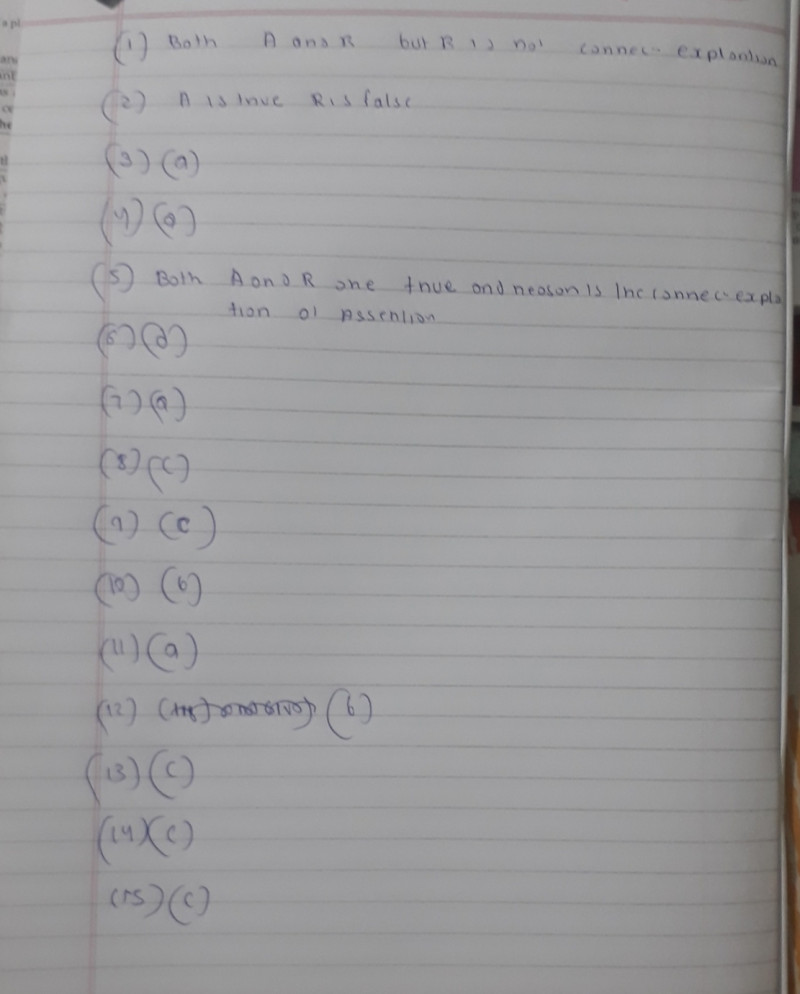 (1) Both A and R but R is not correc- explantion
(2) A is true R is false
(3) (a)
(4) (a)
(5) Both A and R are true and reason is the correc-expla
tion of Assertion
(6) (d)
(7) (a)
(8) (c)
(9) (c)
(10) (b)
(11) (a)
(12) (b)
(13) (c)
(14) (c)
(15) (c)